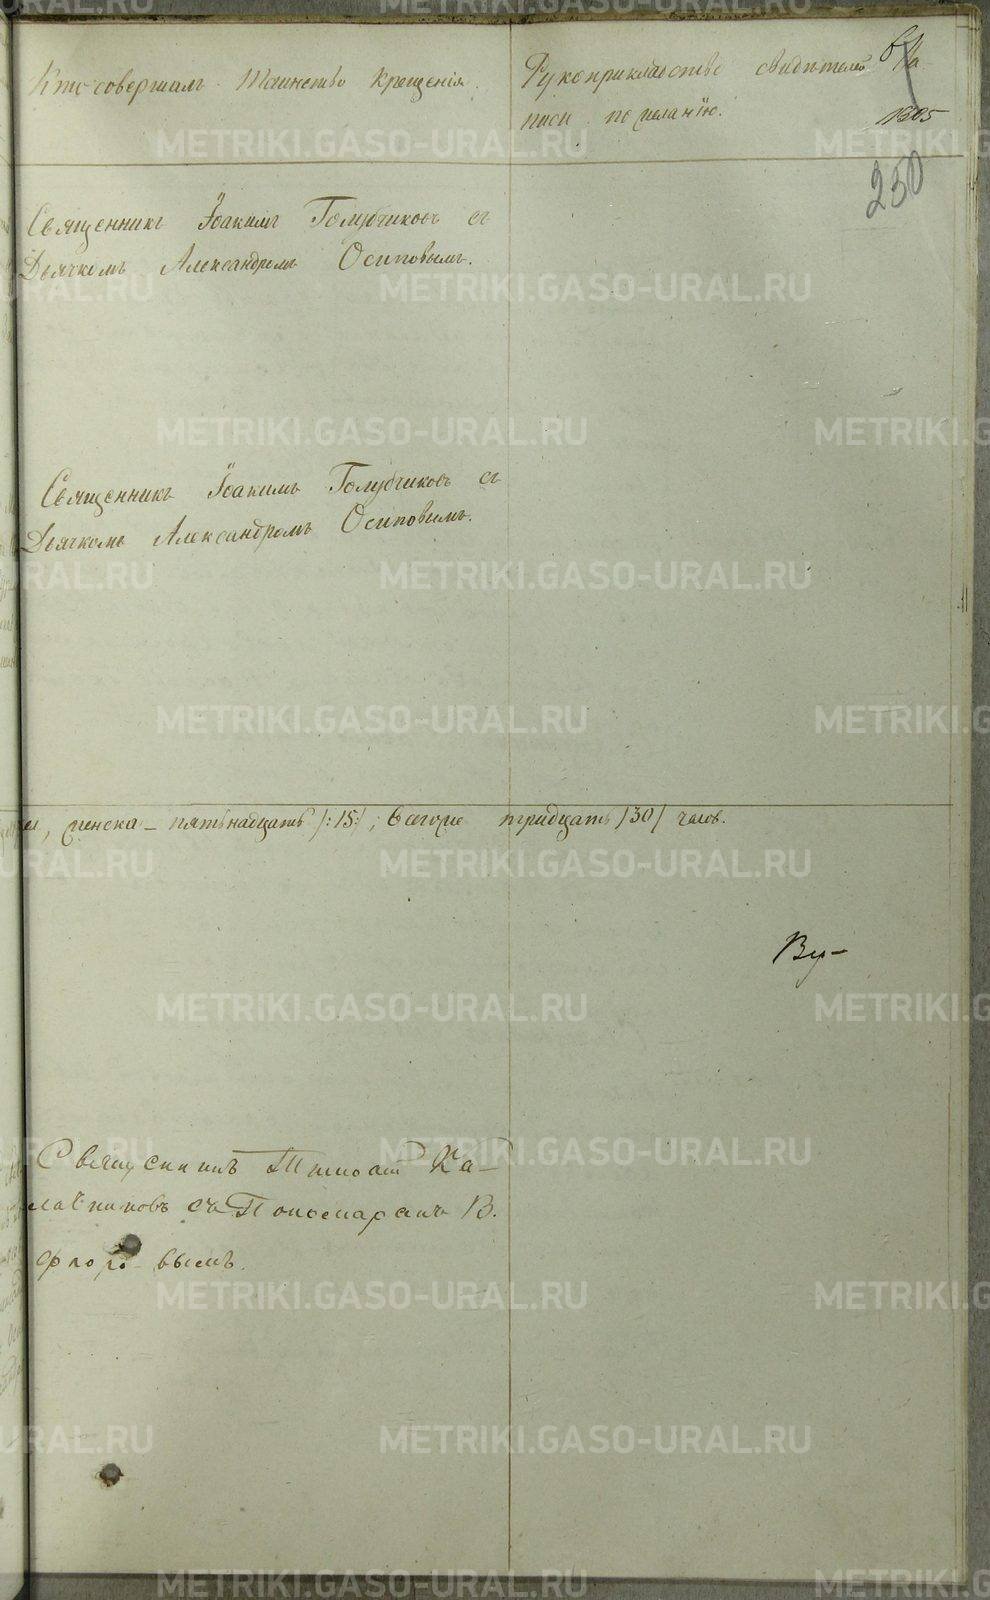 Кто совершалъ Таинство Крещенія.
Рукоприкладство свидѣтелей
писи по желанію.
1305
250
Священникъ Іоакимъ Голубчиковъ съ
Дьячкомъ Александромъ Осиповымъ.
Священникъ Іоакимъ Голубчиковъ съ
Дьячкомъ Александромъ Осиповымъ.
женска – пятьнадцать /:15:/, всегоже тридцать /30/ челов.
Священникъ Тимофей Ка-
лачниковъ съ Пономаремъ В.
Флоро-вымъ.
METRIKI.GASO-URAL.RU